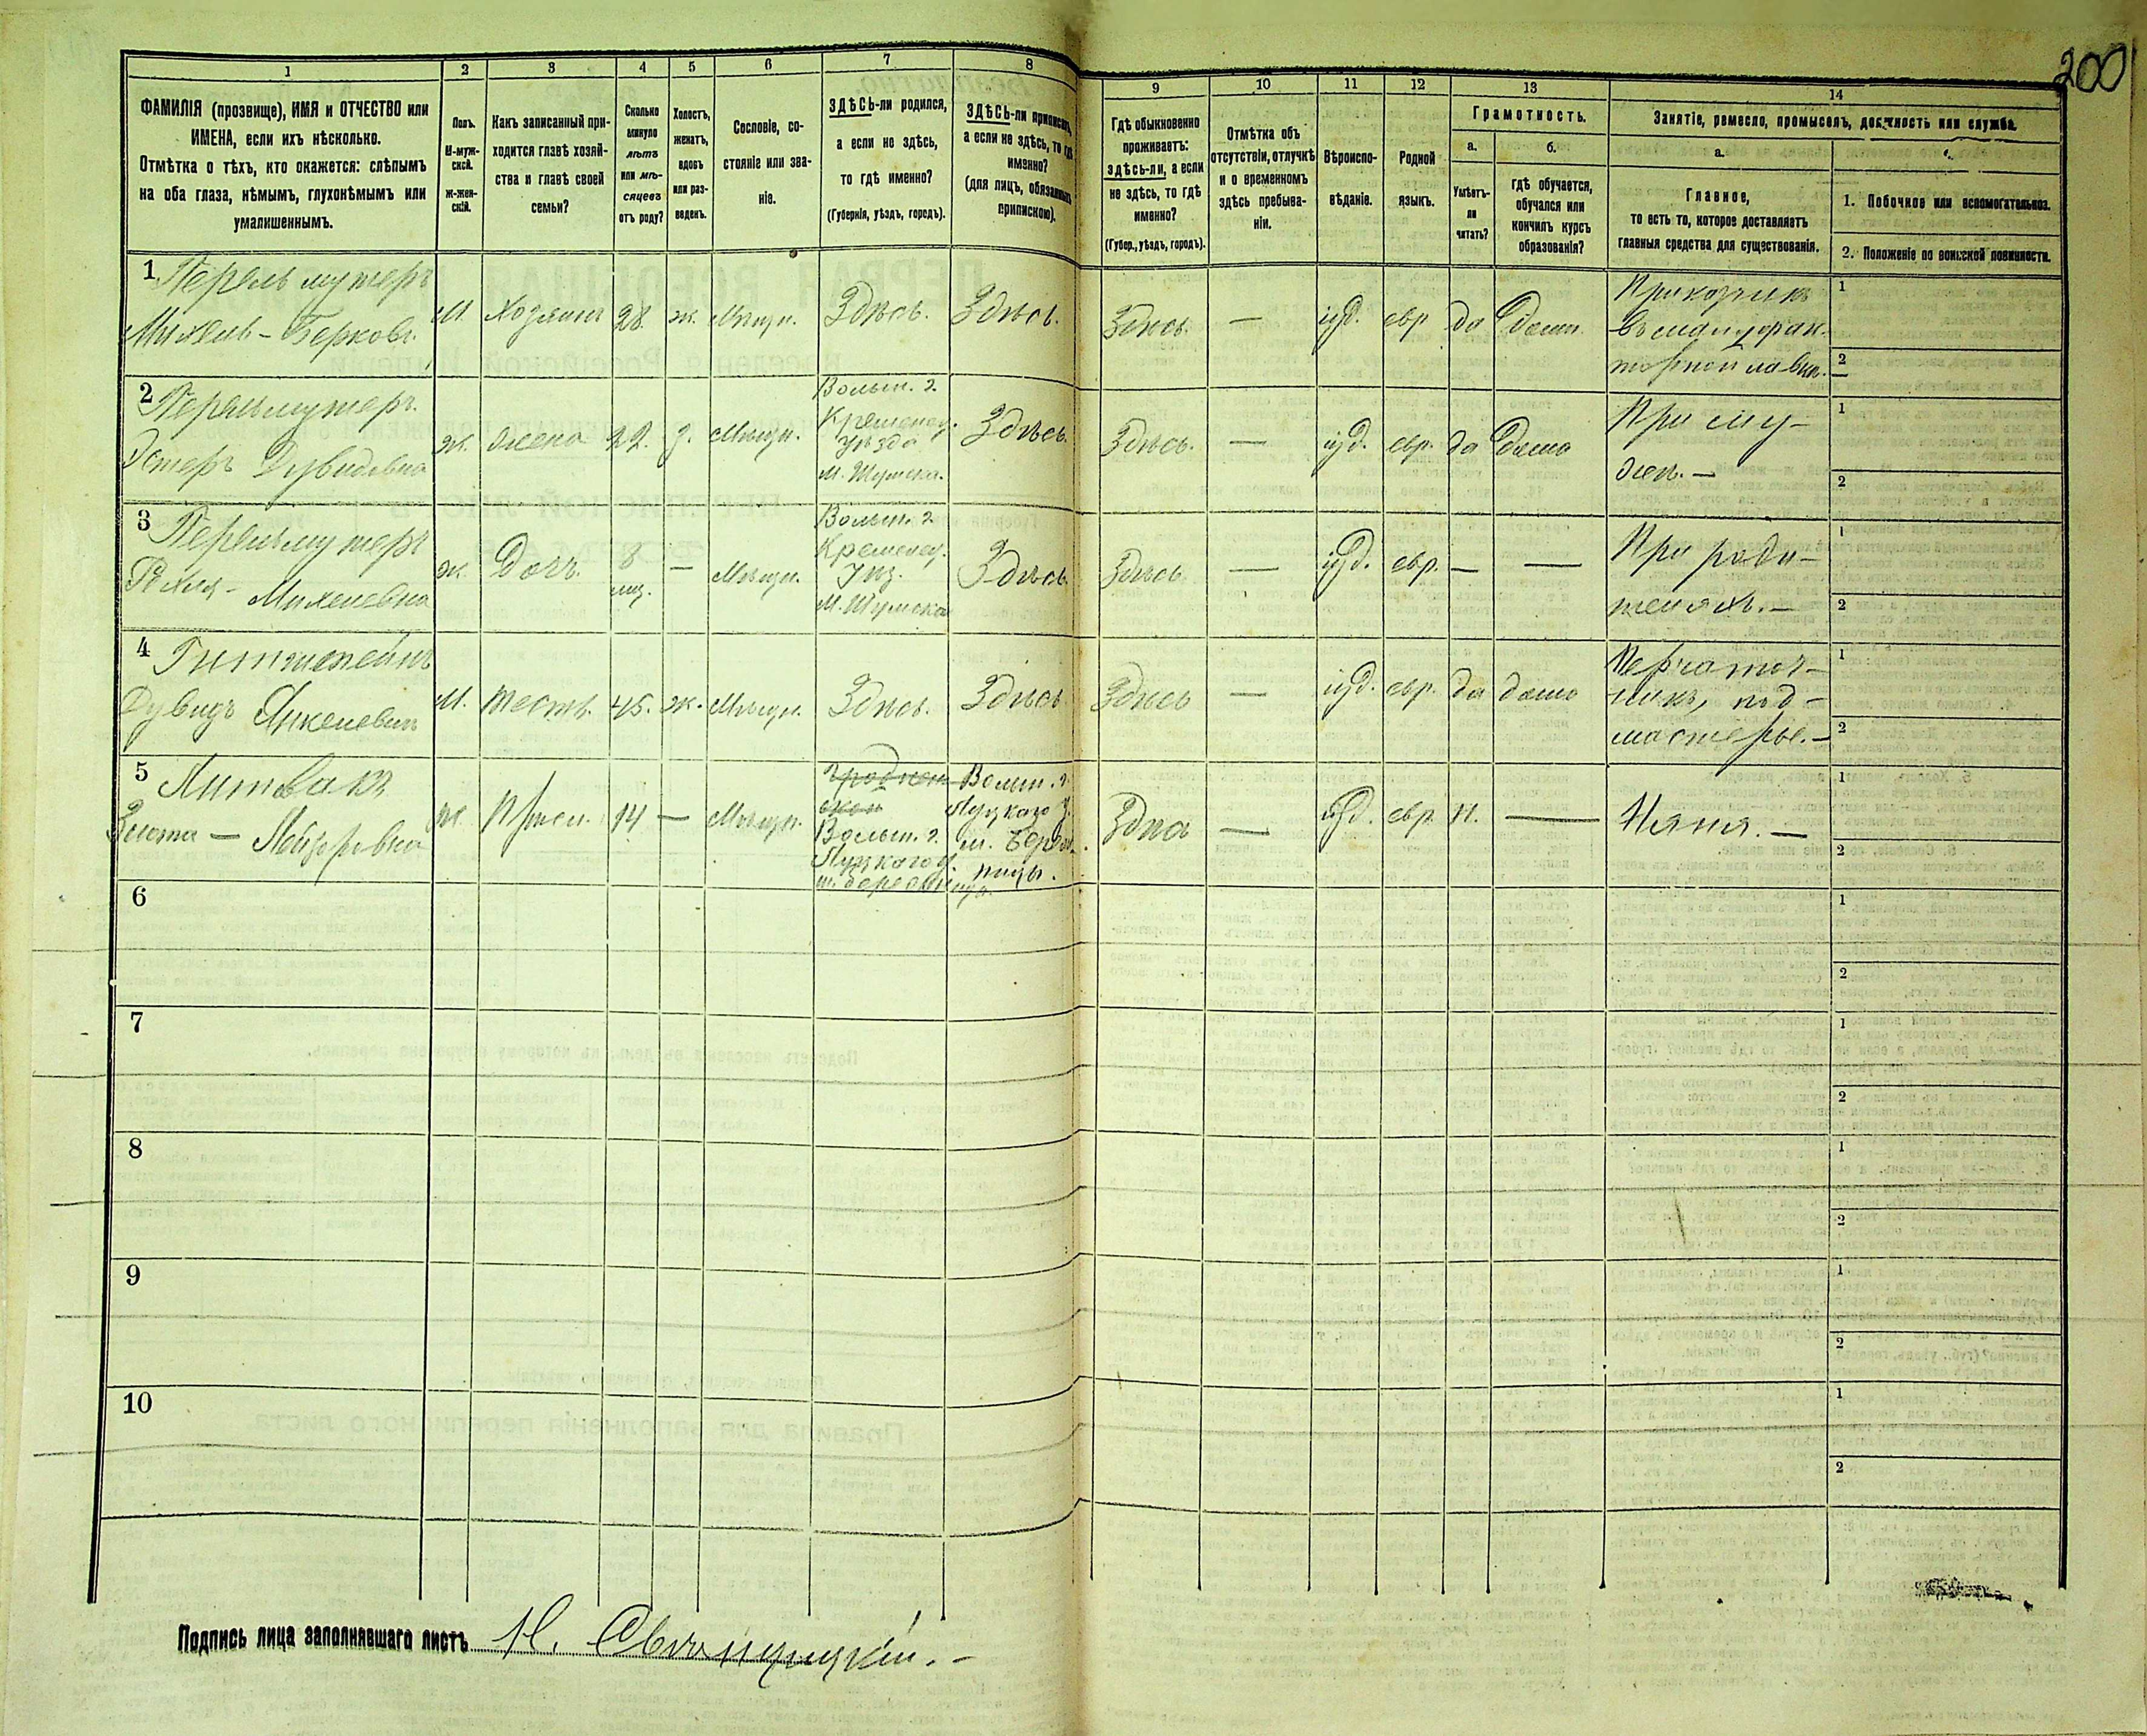 200
1 2 3 4 5 6 7 8 9 10 11 12 13 14
ФАМИЛІЯ (прозвище), ИМЯ и ОТЧЕСТВО или
ИМЕНА, если ихъ нѣсколько.
Отмѣтка о тѣхъ, кто окажется: слѣпымъ
на оба глаза, нѣмымъ, глухонѣмымъ или
умалишеннымъ.
Полъ.
М-муж-
ской.
ж-жен-
скій.
Какъ записанный при-
ходится главѣ хозяй-
ства и главѣ своей
семьи?
Сколько
минуло
лѣтъ
или мѣ-
сяцевъ
отъ роду?
Холостъ,
женатъ,
вдовъ
или раз-
веденъ.
Сословіе, со-
стояніе или зва-
ніе.
ЗДѢСЬ-ли родился,
а если не здѣсь,
то гдѣ именно?
(Губернія, уѣздъ, городъ).
ЗДѢСЬ-ли приписанъ,
а если не здѣсь, то гдѣ
именно?
(для лицъ, обязанныхъ
припискою).
Гдѣ обыкновенно
проживаетъ:
здѣсь-ли, а если
не здѣсь, то гдѣ
именно?
(Губер., уѣздъ, городъ).
Отмѣтка объ
отсутствіи, отлучкѣ
и о временномъ
здѣсь пребыва-
ніи.
Вѣроиспо-
вѣданіе.
Родной
языкъ.
Грамотность.
а.
Умѣетъ-
ли
читать?
б.
гдѣ обучается,
обучался или
кончилъ курсъ
образованія?
Занятіе, ремесло, промыселъ, должность или служба.
а.
Главное,
то есть то, которое доставляетъ
главныя средства для существованія.
1. Побочное или вспомогательное.
2. Положеніе по воинской повинности.
1 Перельмутеръ
Михель-Берковъ.
М Хозяинъ 28. ж. Мѣщн. Здѣсь. Здѣсь. Здѣсь. — іуд. евр да дома
Приказчикъ
въ мануфак-
турной лавкѣ.
1
2
2 Перельмутеръ.
Эстеръ Дувидовна
ж. жена 22. з. Мѣщн.
Волын. г.
Кременец.
уѣзда
м. Шумска.
Здѣсь. Здѣсь. — іуд. евр. да дома
При му-
жѣ.—
1
2
3 Перельмутеръ
Рахля- Михелевна
ж. Дочь. 8
мц.
— Мѣщн.
Волын. г.
Кременец.
Уѣз.
М. Шумска
Здѣсь. Здѣсь — іуд. евр. — —
При роди-
теляхъ.—
1
2
4
Дувидъ Янкелевич
М. тесть. 45. ж. Мѣщн. Здѣсь. Здѣсь Здѣсь — іуд. евр. да дома
Перчаточ-
никъ, под-
мастерье.—
1
2
5 Литвакъ
Злота — Лейзеровна
ж. Присл. 14 — Мѣщн.
Гроднен
ской
Волын. г.
Луцкаго у.
м. Берестницы.
Волын. г.
Луцкаго у.
м. Берест-
ницы.
Здѣсь — іуд. евр. н. — Няня. —
1
2
6
1
2
7
1
2
8
1
2
9
1
2
10
1
2
Подпись лица заполнявшаго листъ